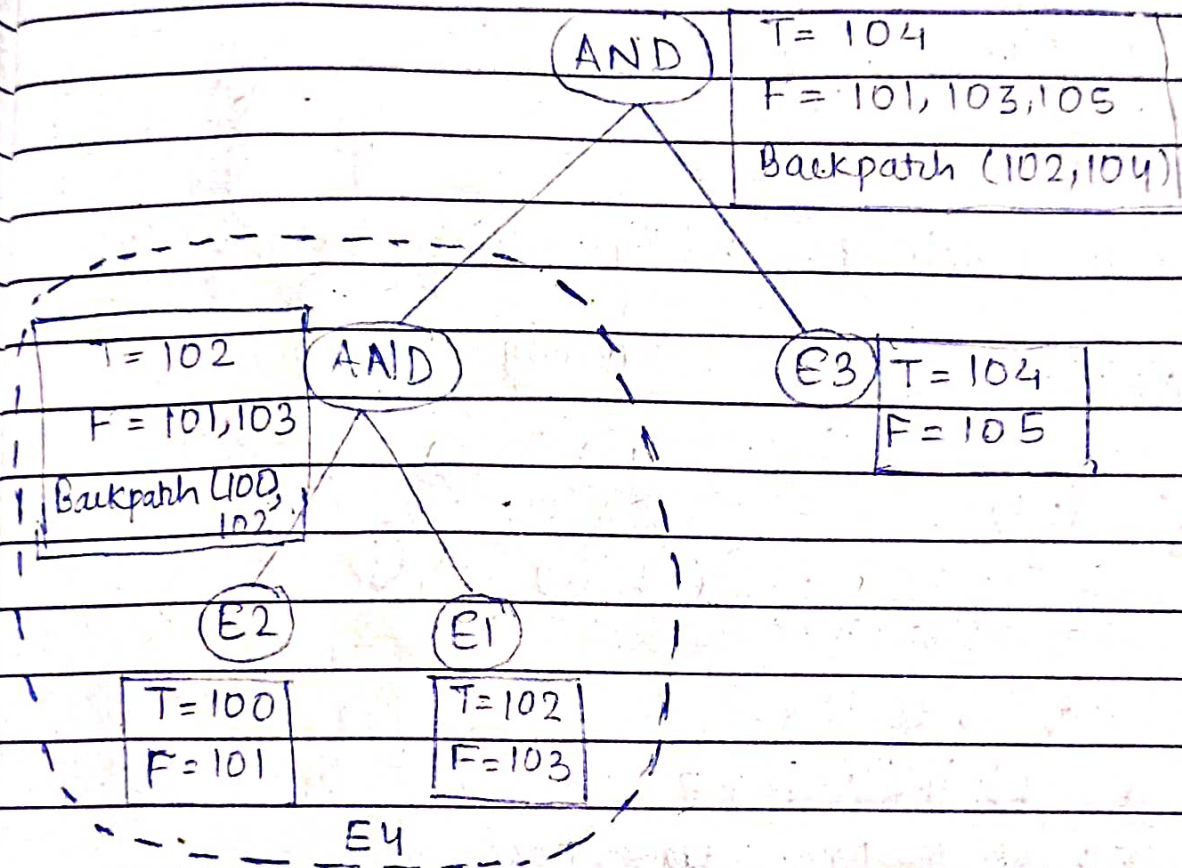 AND
T = 104
F = 101, 103, 105
Backpatch (102, 104)
T = 102
F = 101, 103
Backpatch (100,
102
AND
E3
T = 104
F = 105
E2
E1
T = 100
F = 101
T = 102
F = 103
E4